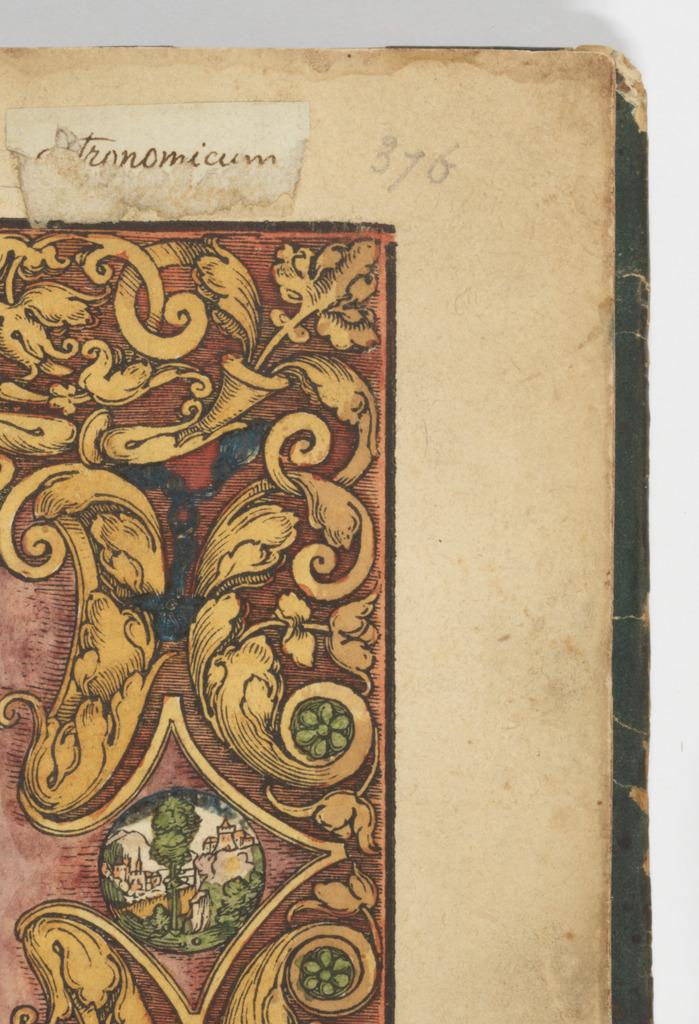 tronomicum
376